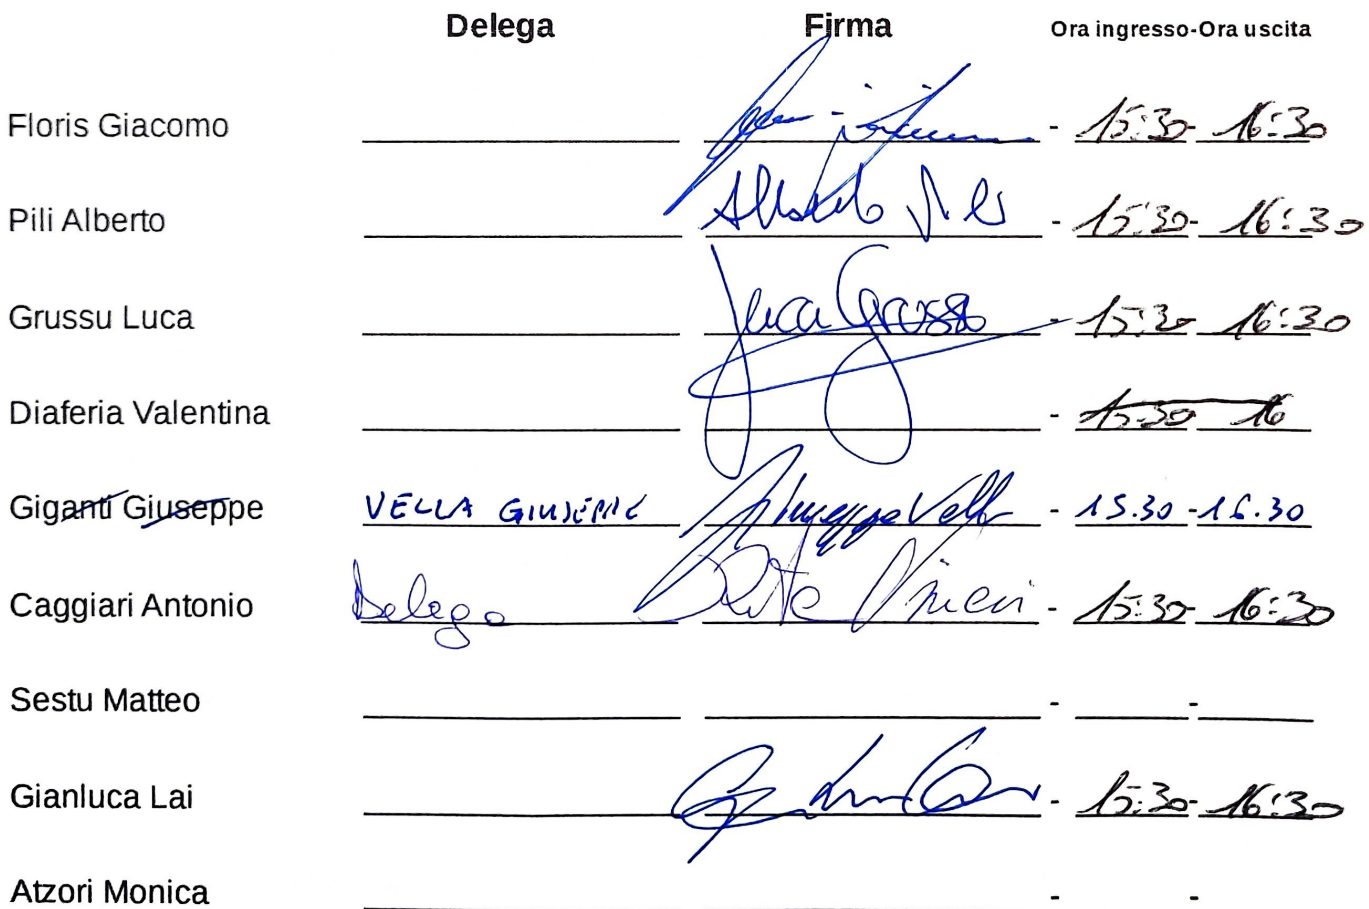 Delega Firma Ora ingresso-Ora uscita
Floris Giacomo - 15:30 - 16:30
Pili Alberto Alberto Pili - 15:30 - 16:30
Grussu Luca Luca Grussu - 15:30 - 16:30
Diaferia Valentina - 15:30 16
Giganti Giuseppe VELLA GIUSEPPE Giuseppe Vella - 15.30 - 16.30
Caggiari Antonio Delega - 15:30 - 16:30
Sestu Matteo - -
Gianluca Lai - 15:30 - 16:30
Atzori Monica - -